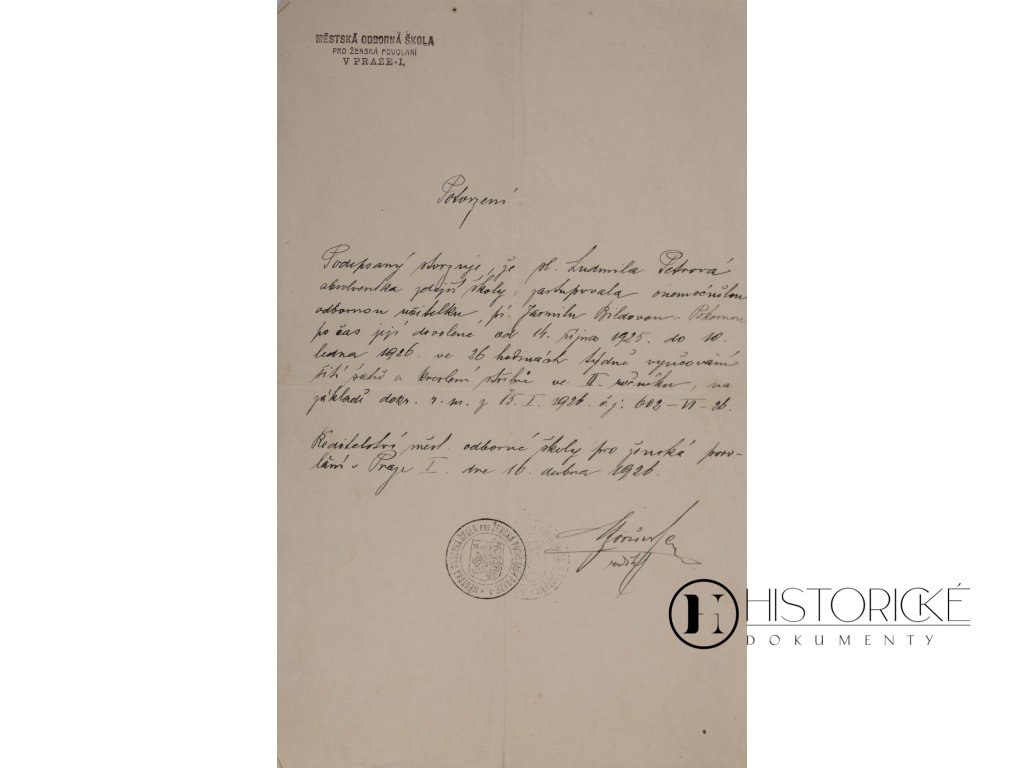 MĚSTSKÁ ODBORNÁ ŠKOLA
PRO ŽENSKÁ POVOLÁNÍ
V PRAZE-I.
Potvrzení.
Podepsaný stvrzuje, že sl. Ludmila Petrová
absolventka zdejší školy, zastupovala onemocnělou
odbornou učitelku, pí. Jarmilu Bildovou-Pokornou
po čas její dovolené, od 14. října 1925. do 10.
ledna 1926. ve 26 hodinách týdně vyučování
šití šatů a kreslení střihů ve II. ročníku, na
základě dekr. r. m. z 15. I. 1926. č. j. 602-VI-26.
Ředitelství měst. odborné školy pro ženská povo-
lání v Praze I. dne 16. dubna 1926.
MĚSTSKÁ ODBORNÁ ŠKOLA PRO ŽENSKÁ POVOLÁNÍ V PRAZE-I.
HISTORICKÉ
DOKUMENTY